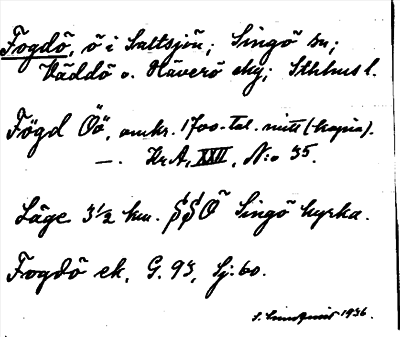 Fogdö, ö i Saltsjön; Singö sn;
Väddö o. Häverö sky; Sthlms l.
Fögd Öö, omkr. 1700-tal. mitt (kopia).
—. Kr.A. XXII, N:o 35.
Läge 3 1/2 km. SSO Singö kyrka.
Fogdö ek. G. 93, Sj: 60.
S. 1936.